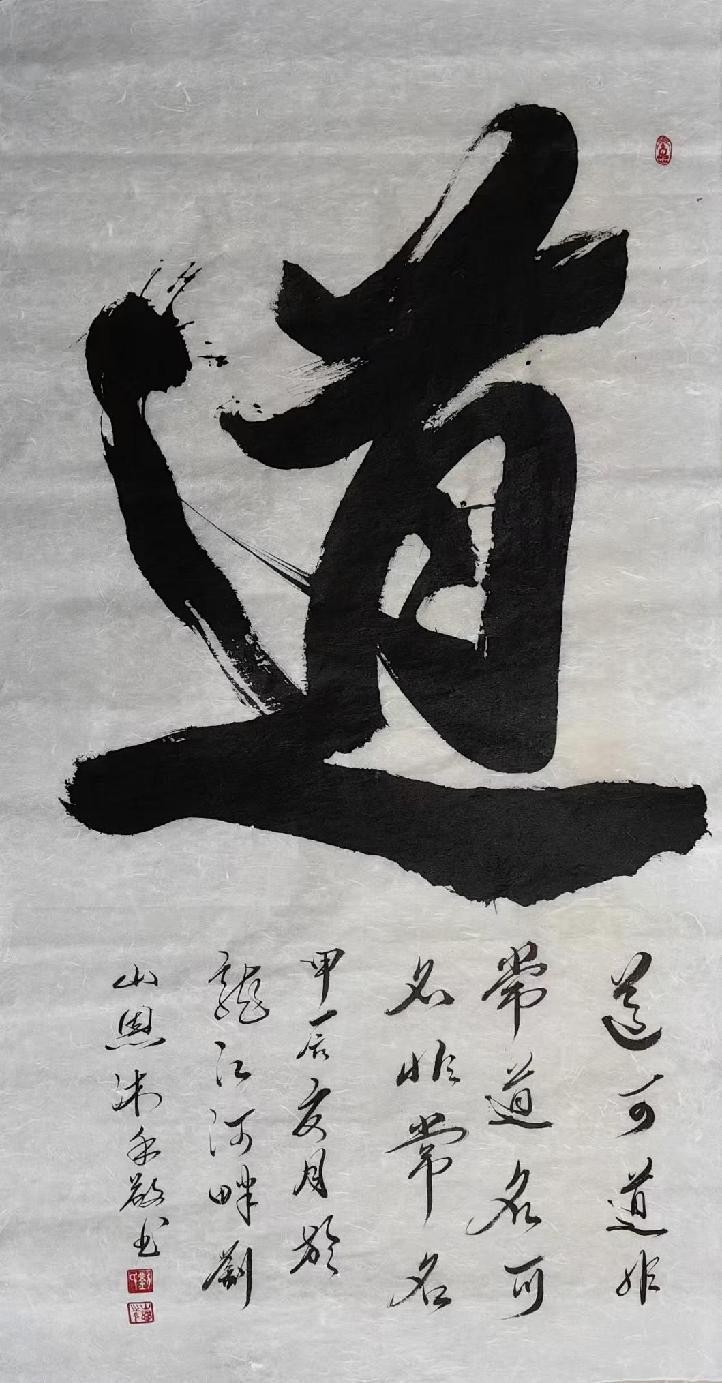 道
道可道非
常道名可
名非常名
甲辰亥月於
龍江河畔劉
山恩沐手敬书